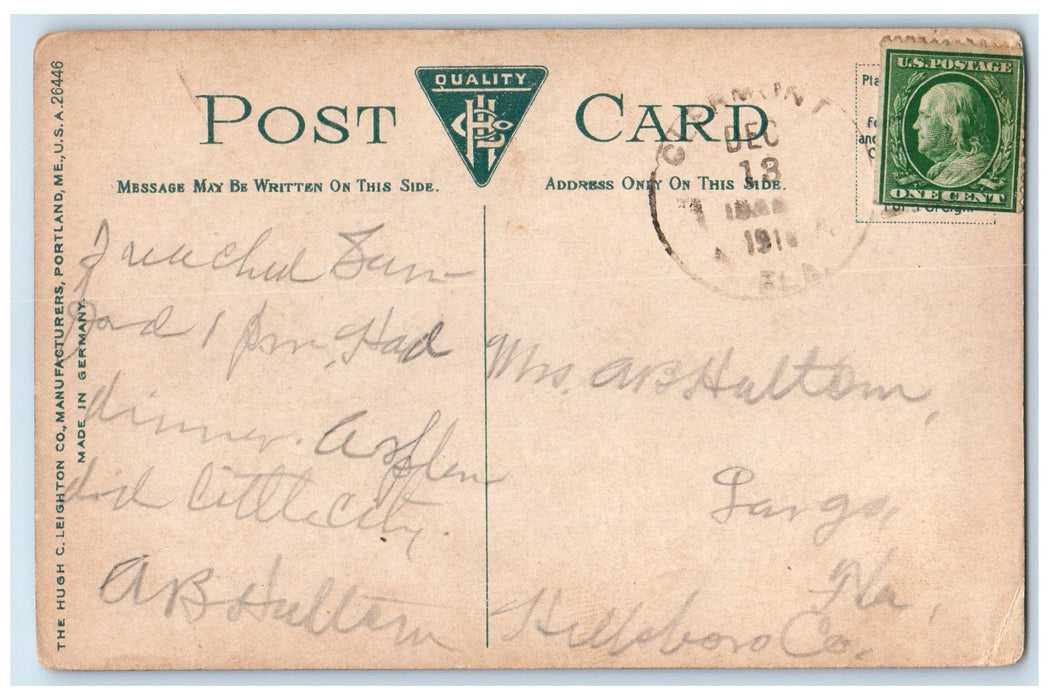 POST CARD
QUALITY
MESSAGE MAY BE WRITTEN ON THIS SIDE.
ADDRESS ONLY ON THIS SIDE.
THE HUGH C. LEIGHTON CO., MANUFACTURERS, PORTLAND, ME., U.S.A. 26446
MADE IN GERMANY.
U.S. POSTAGE
ONE CENT
DEC
13
FLA
I reached San
ford 1 pm, Had
dinner. A Splen
did little city.
AB Haltom
Mrs. AB Haltom,
Largo,
Fla,
Hillsboro Co.